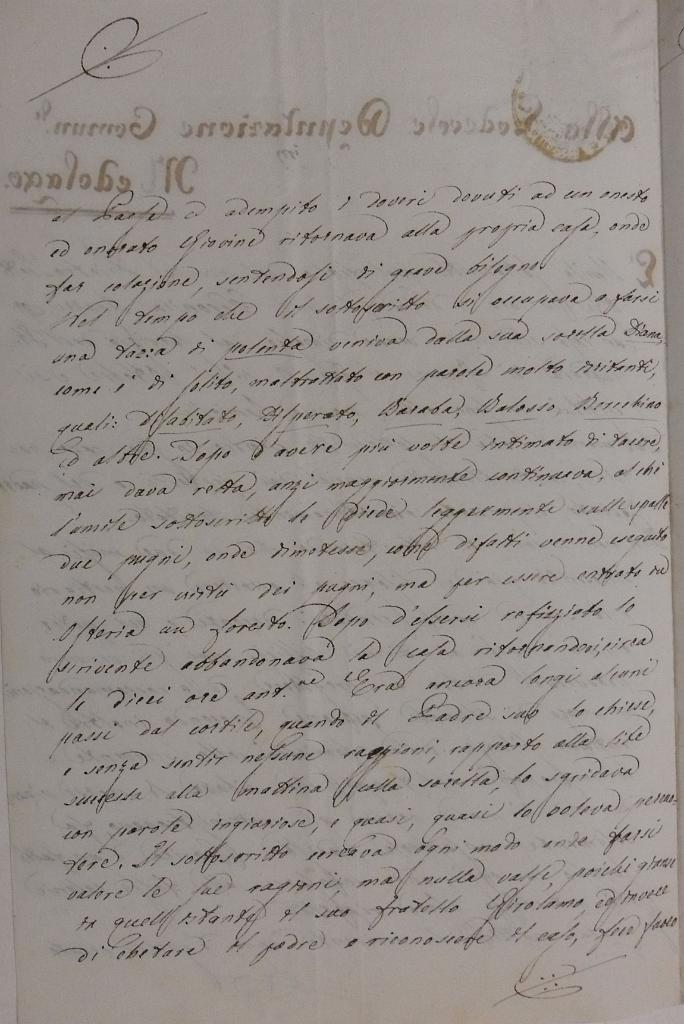 Alla Lodevole Deputazione Comun.le
Medolago
al Paese ed adempito i doveri dovuti ad un onesto
ed onorato Giovine ritornava alla propria casa, onde
far colazione, sentendosi di grave bisogno.
Nel tempo che il sottoscritto si occupava a farsi
una tazza di polenta veniva dalla sua sorella Diana,
come è di solito, maltrattato con parole molto irritanti,
quali: Disabitato, Disperato, Baraba, Balosso, Becchino
Ed altre. Dopo d'avere più volte intimato di tacere,
mai dava retta, anzi maggiormente continuava, al chi
l'umile sottoscritto le diede leggermente sulle spalle
due pugni, onde rimettesse, come difatti venne eseguito
non per virtù dei pugni, ma per essere entrato in
Osteria un foresto. Dopo d'essersi refiziato lo
scrivente abbandonava la casa ritornandovi, circa
le dieci ore ant.ne Era ancora lungi alcuni
passi dal cortile, quando il Padre suo lo chiese,
e senza sentir nessune raggioni, rapporto alla lite
successa alla mattina colla sorella, lo sgridava
con parole ingiuriose, e quasi, quasi lo voleva percuo-
tere. Il sottoscritto cercava ogni modo onde farsi
valere le sue ragioni, ma nulla valse, poichè giunse
in quell'istante il suo fratello Girolamo, ed invece
di chetare il padre e riconoscere il caso, fece